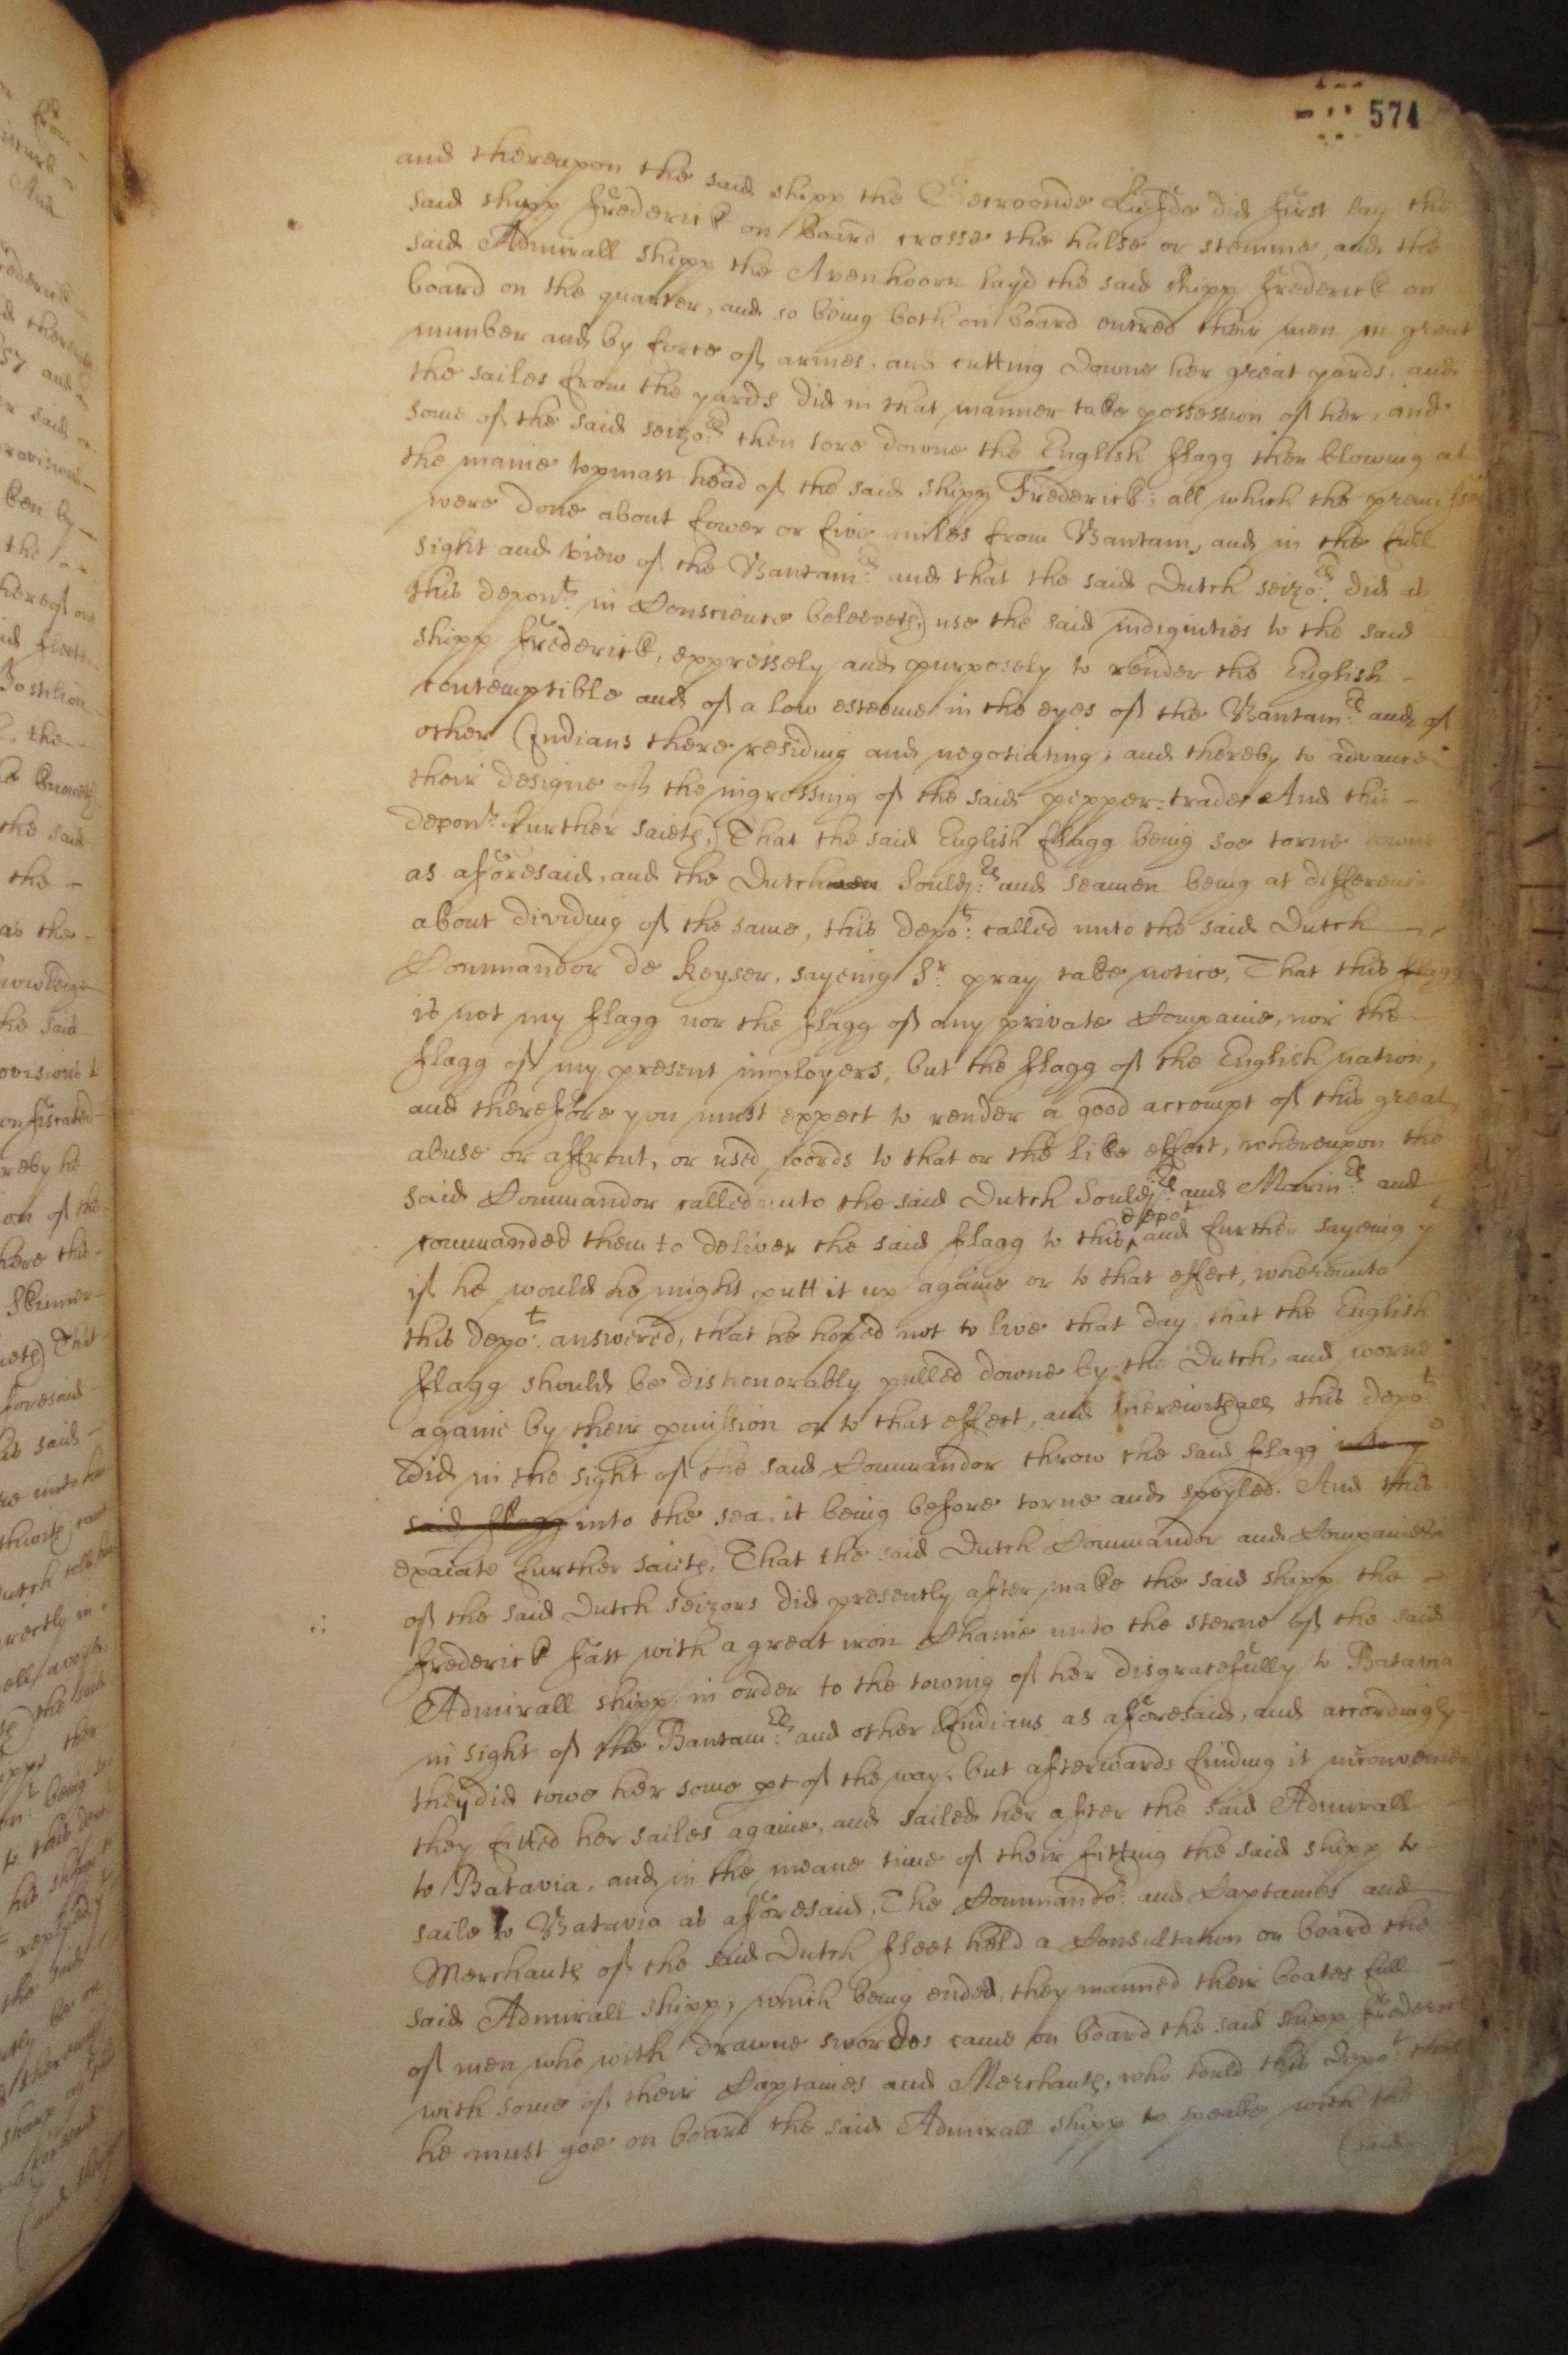 574
and thereupon the said shipp the Getroonde Liefde did first lay the
said shipp ffrederick on board crosse the halse or stemme, and the
said Admirall shipp the Avenhoorn layd the said shipp ffrederick on
board on the quarter, and so being both on board entred their men in great
number and by force of armes, and cutting downe her great yards, and
the sailes from the yards did in that manner take possession of her, and
some of the said seizo:rs then tore downe the English fflagg then blowing at
the maine topmast head of the said shipp Frederick; all which the premisses
were done about fower or five miles from Bantam, and in the full
sight and view of the Bantam:rs and that the said Dutch seizo:rs did as
this depon:t in Conscience beleeveth) use the said indignities to the said
shipp ffrederick, expressely and purposely to render the English -
contemptible and of a low esteeme in the eyes of the Bantam:rs and of
other Indians there residing and negotiating, and thereby to advance
their designe of the ingrossing of the said pepper-trade. And this -
depon:t further saieth, That the said English fflagg being soe torne downe
as aforesaid, and the Dutchmen Souldj:rs and seamen being at difference
about dividing of the same, this depo:t called unto the said Dutch
Commandor de Keyser, sayeing S:r pray take notice, That this fflagg
is not my fflagg nor the fflagg of any private Companie, nor the -
fflagg of my present imployers, but the fflagg of the English nation,
and therefore you must expect to render a good accompt of this great
abuse or affront, or used words to that or the like effect, whereupon the
said Commandor called unto the said Dutch Souldj:rs and Marin:rs and
depot
commanded them to deliver the said fflagg to this and further sayeing yt
if he would he might putt it up againe or to that effect, whereunto
this depo:t answered, that he hoped not to live that day that the English
fflagg should be dishonorably pulled downe by the Dutch, and worne
againe by their pmission or to that effect, and therewithall this depo:t
did in the sight of the said Commandor throw the said fflagg into ye
said fflagg into the sea, it being before torne and spoyled. And this
exaiate further saieth, That the said Dutch Commandor and Companies
of the said Dutch seizors did presently after make the said shipp the -
ffrederick fast with a great iron Chaine unto the sterne of the said
Admirall shipp in order to the towing of her disgracefully to Batavia
in sight of the Bantam:rs and other Indians as aforesaid, and accordingly
they did towe her some pt of the way, but afterwards finding it inconvenient
they fitted her sailes againe, and sailed her after the said Admirall
to Batavia, and in the meane time of their fitting the said shipp to
saile to Batavia as aforesaid, The Commando:r and Captaines and
Merchants of the said Dutch fleet held a Consultation on board the
said Admirall shipp, which being ended, they manned their boates full -
of men who with drawne swordes came on board the said shipp ffrederick
with some of their Captaines and Merchants, who tould this depo:t that
he must goe on board the said Admirall shipp to speake with the
(said